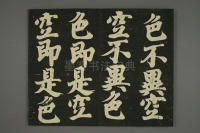 色不異空
空不異色
色即是空
空即是色